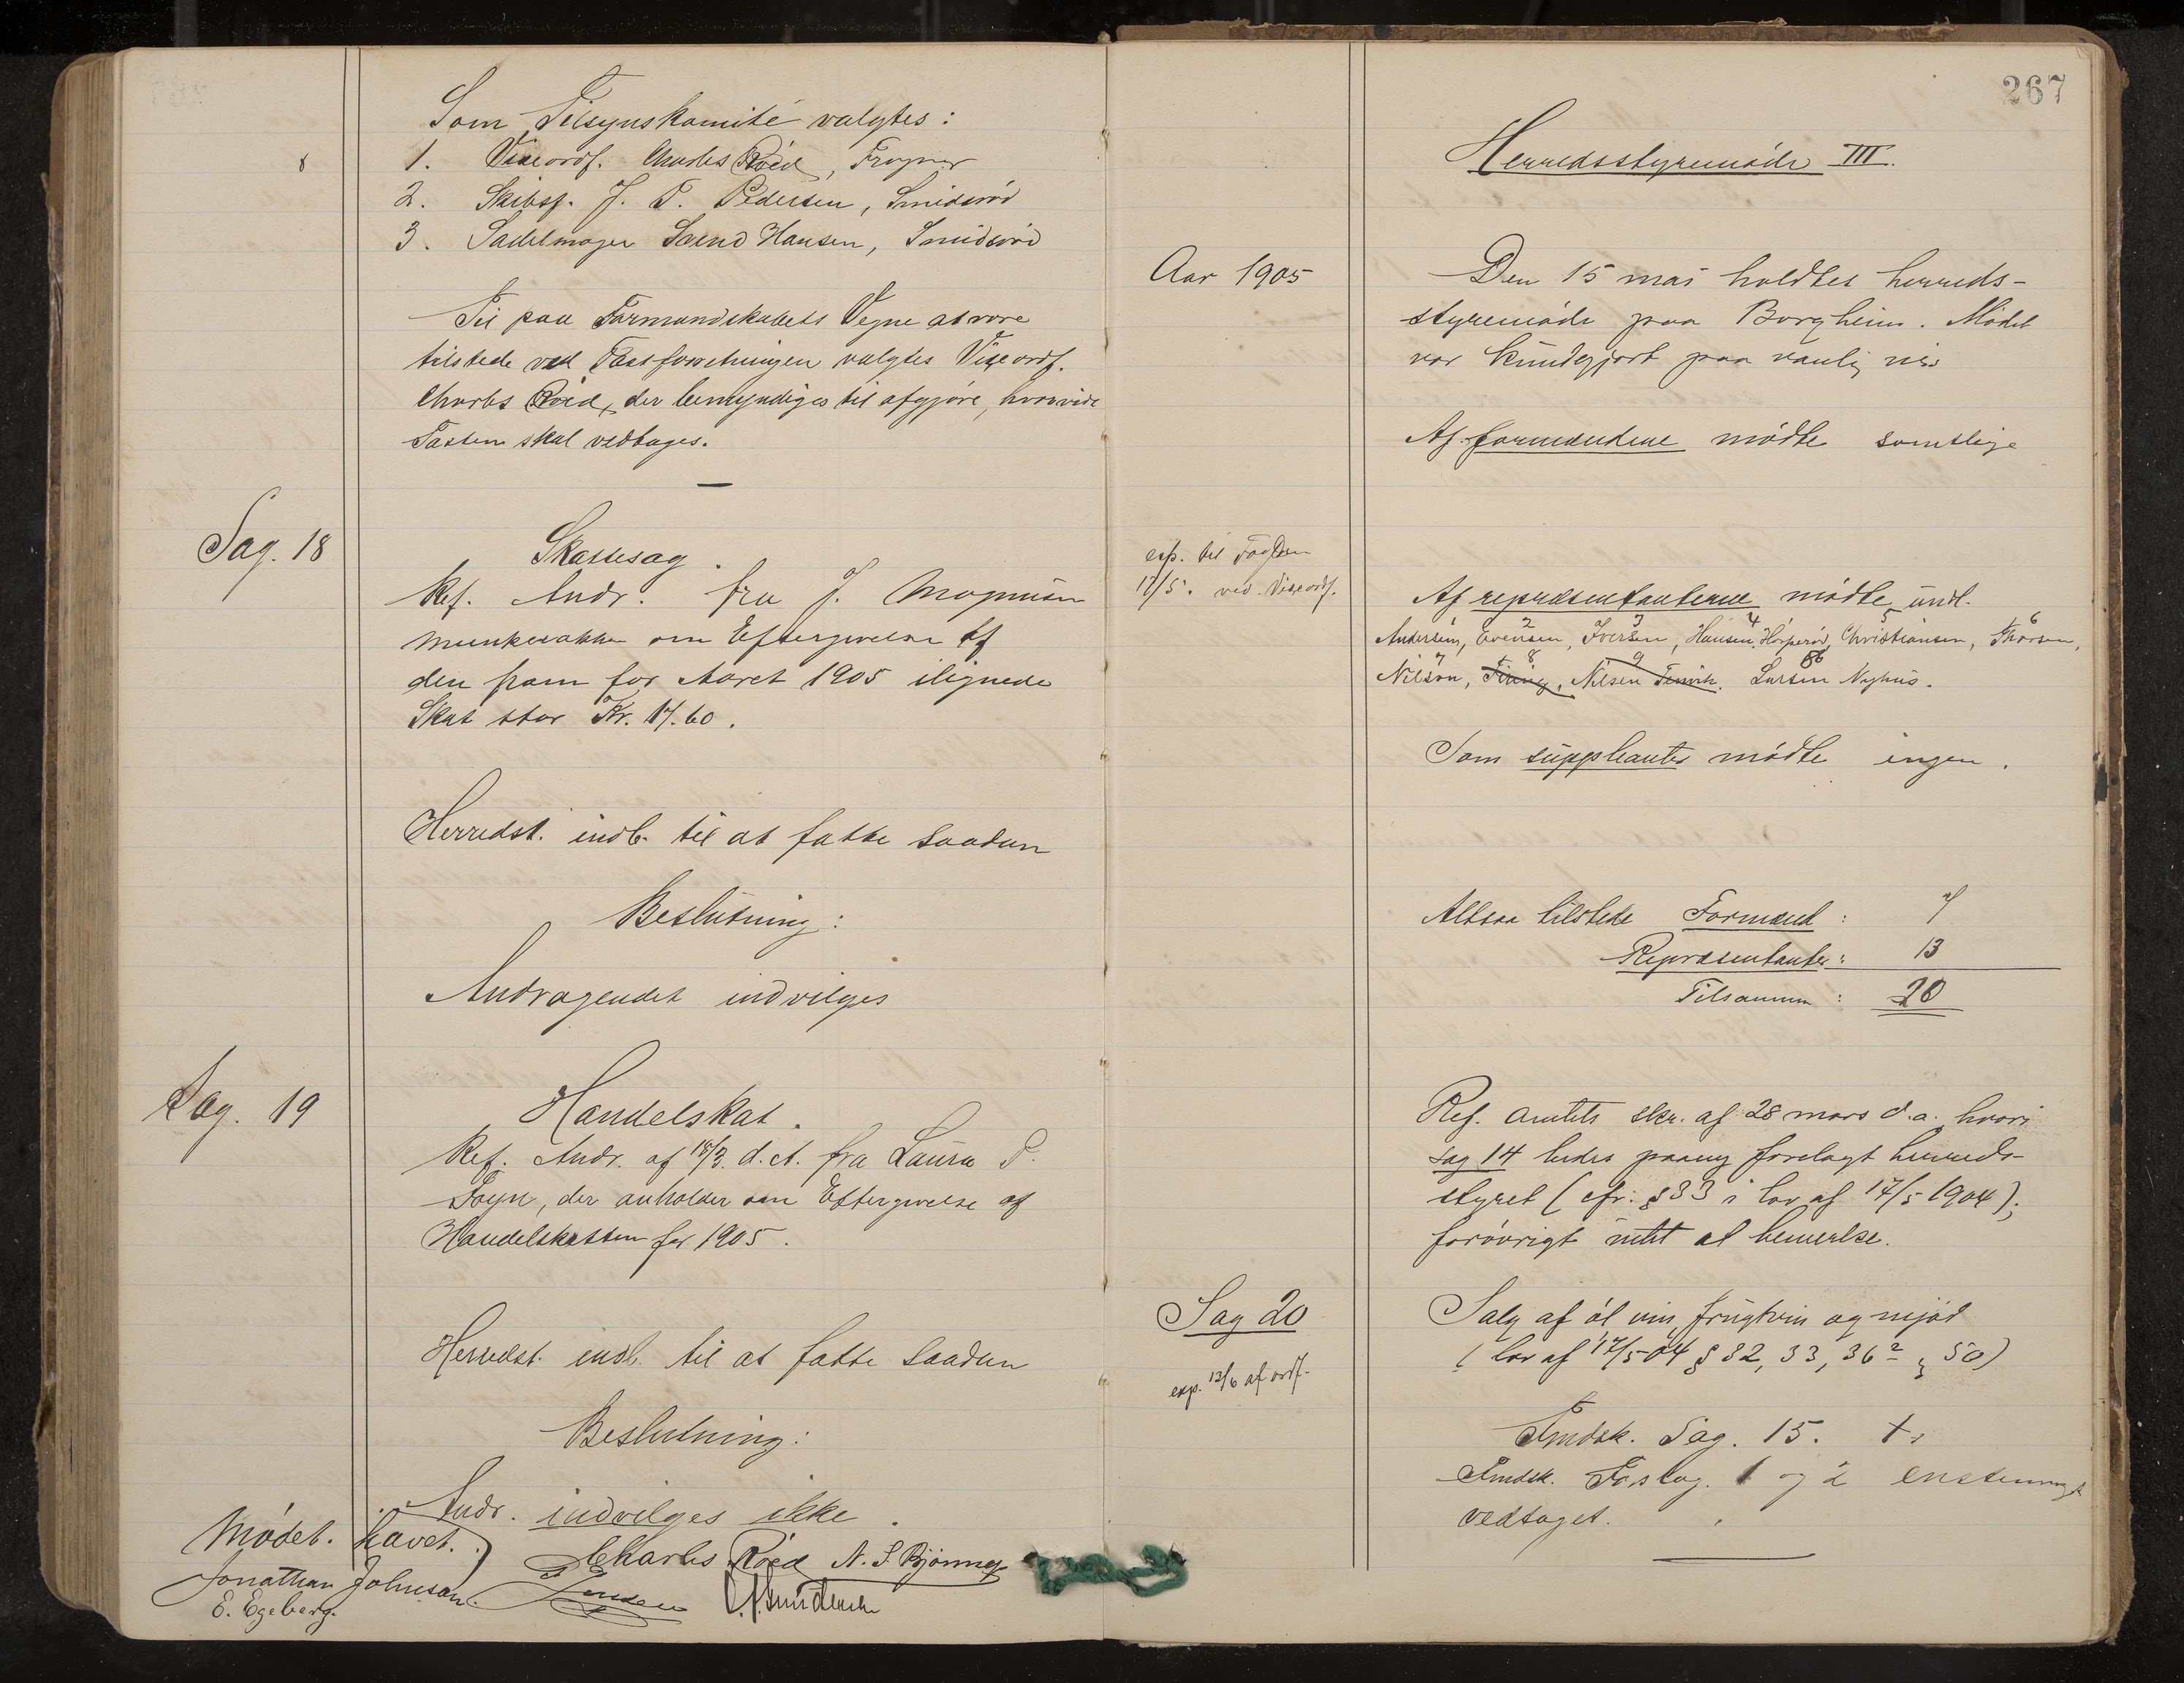 Som Tilsynskomité valgtes:
8
1. Viseordf. Charles Röed, Frogner
2. Skibsf. J. T. Pedersen, Smidsrød
3. Sadelmager Svend Hansen, Smidsrød
Til paa Formandskabets Vegne at være
tilstede ved Takstforretningen valgtes Viseordf.
Charles Röed, der bemyndiges til afgjøre, hvorvidt
Taksten skal vedtages.
Sag. 18
Skattesag.
Ref. Andr. fra J. Magnusen
Munkerekken om Eftergivelse af
den ham for Aaret 1905 ilignede
Skat stor Kr. 17.60.
Herredst. indb. til at fatte saadan
Beslutning:
Andragendet indvilges
Sag. 19
Handelskat.
Ref. Andr. af 18/3. d.A. fra Laura P.
Foyn, der anholder om Eftergivelse af
Handelskatten for 1905.
Herredst. indb. til at fatte saadan
Beslutning:
Andr. indvilges ikke.
Mødet. hævet.
Charles Röed N. S. Bjønnes
Jonathan Johnson. Jensen
E. Egeberg.
267
Herredsstyremøde III.
Aar 1905
Den 15 mai holdtes herreds-
styremøde paa Borgheim. Mødet
var kundgjort paa vanlig vis
Af formændene mødte samtlige
exp. til Fogden
17/5. ved Viseordf.
Af repræsentanterne mødte undt.
Andersen, Evensen, Iversen, Hansen Horperød, Christiansen, Thorsen,
2 3 4 5 6
Nilsøn, Nilsen Tenvik. Larsen Nyhus.
7 8 9
Som suppleanter mødte ingen.
Altsaa tilstede Formænd: 7
Repræsentanter: 13
Tilsammen: 20
Ref. amtets skr. af 28 mars d.a. hvori
sag 14 bedes paany forelagt herreds-
styret (cfr. § 33 i lov af 17/5 1904);
forøvrigt intet at bemerke.
Sag 20
Salg af øl vin, frugtvin og mjød
(lov af 17/5-04 § 32, 33, 36², 50)
exp. 12/6 af ordf.
Fmdsk. Sag. 15.
Fmdsk. Forslag. 1 og 2 enstemmigt
vedtaget.